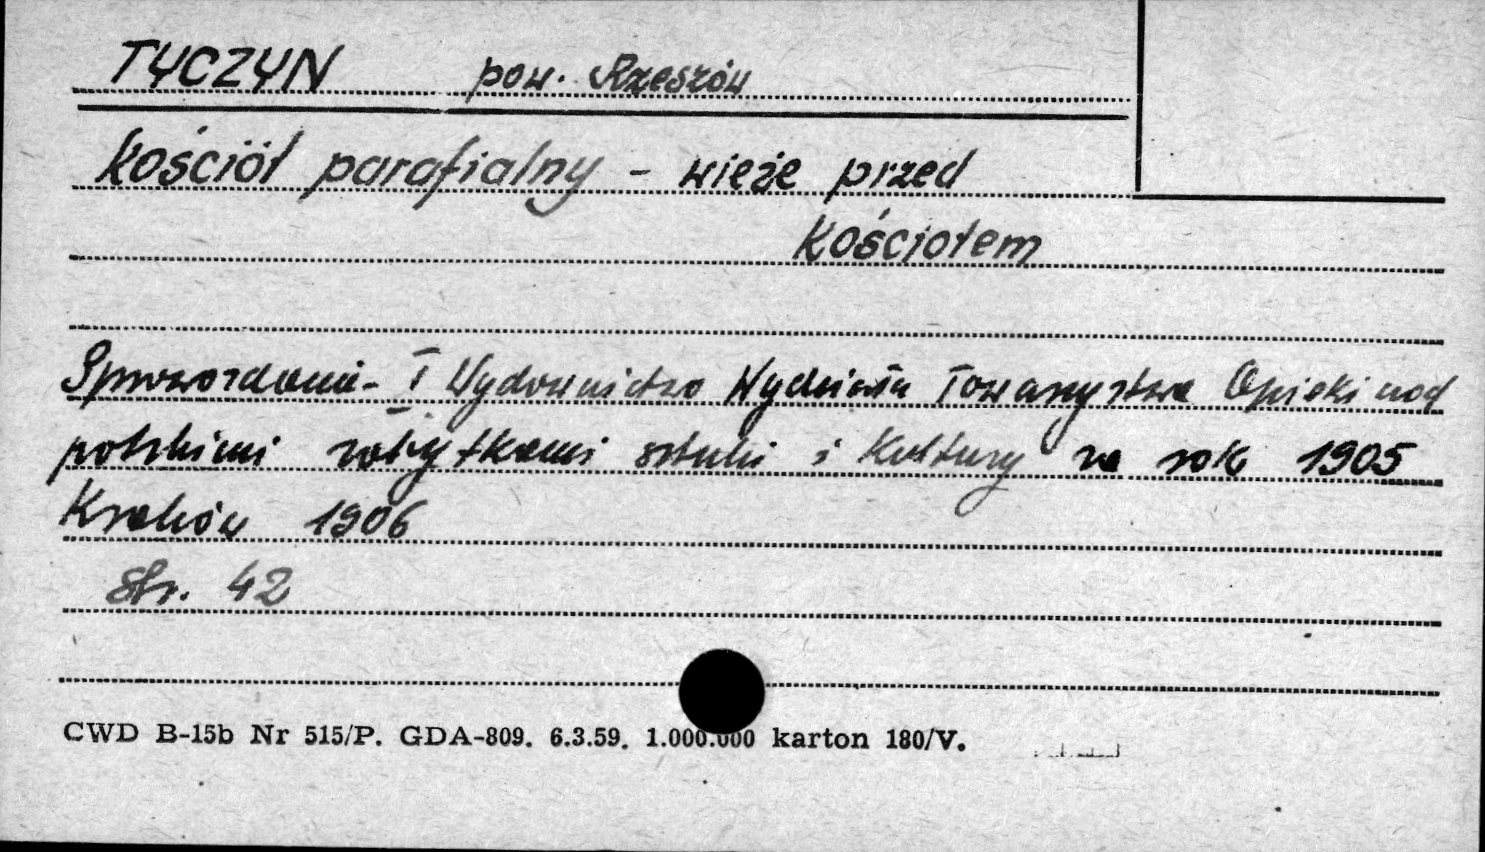 TYCZYN pow. Rzeszów
Kościół parafialny - wieże przed
Kościołem
Sprawozdanie I Wydawnictwo Wydziału Towarzystwa Opieki nad
polskimi zabytkami sztuki i Kultury za rok 1905
Kraków 1906
str. 42
CWD B-15b Nr 515/P. GDA-809. 6.3.59. 1.000.000 karton 180/V.